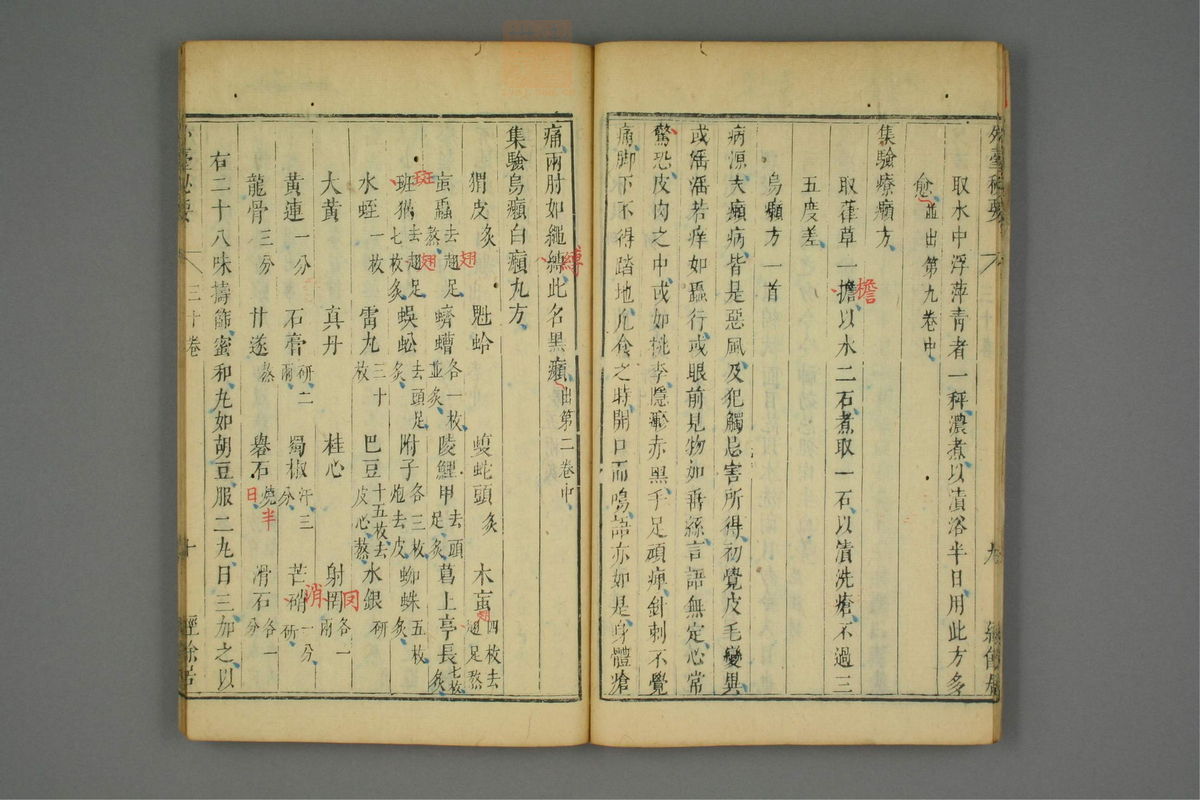 外臺秘要
取水中浮萍青者一秤濃煮以漬浴半日用此方多
愈並出第九卷中
集驗療癩方
取葎草一擔以水二石煮取一石以漬洗瘡不過三
五度差
烏癩方一首
病源夫癩病皆是惡風及犯觸忌害所得初覺皮毛變異
或淫淫若痒如蟲行或眼前見物如垂絲言語無定心常
驚恐皮肉之中或如桃李隱軫赤黑手足頑痺針刺不覺
痛脚下不得踏地凡食之時開口而鳴語亦如是身體瘡
痛兩肘如繩縛此名黑癩出第二卷中
集驗烏癩白癩九方
猬皮炙 魁蛤 蝮蛇頭炙 木䖟四枚去翅足熬
䖟蟲去翅足熬 蠐螬各一枚並炙 陵鯉甲去頭足炙 葛上亭長七枚炙
斑猫去翅足七枚炙 蜈蚣去頭足炙 附子各三枚炮去皮 蜘蛛五枚炙
水蛭一枚 雷丸三十枚 巴豆十五枚去皮心熬 水銀研
大黃 真丹 桂心 射罔各一兩
黃連一分 石膏研二兩 蜀椒汗三分 芒硝一分研
龍骨三分 甘遂熬 礜石燒 滑石各一分
右二十八味擣篩蜜和丸如胡豆服二丸日三加之以
三十卷
十
經餘居